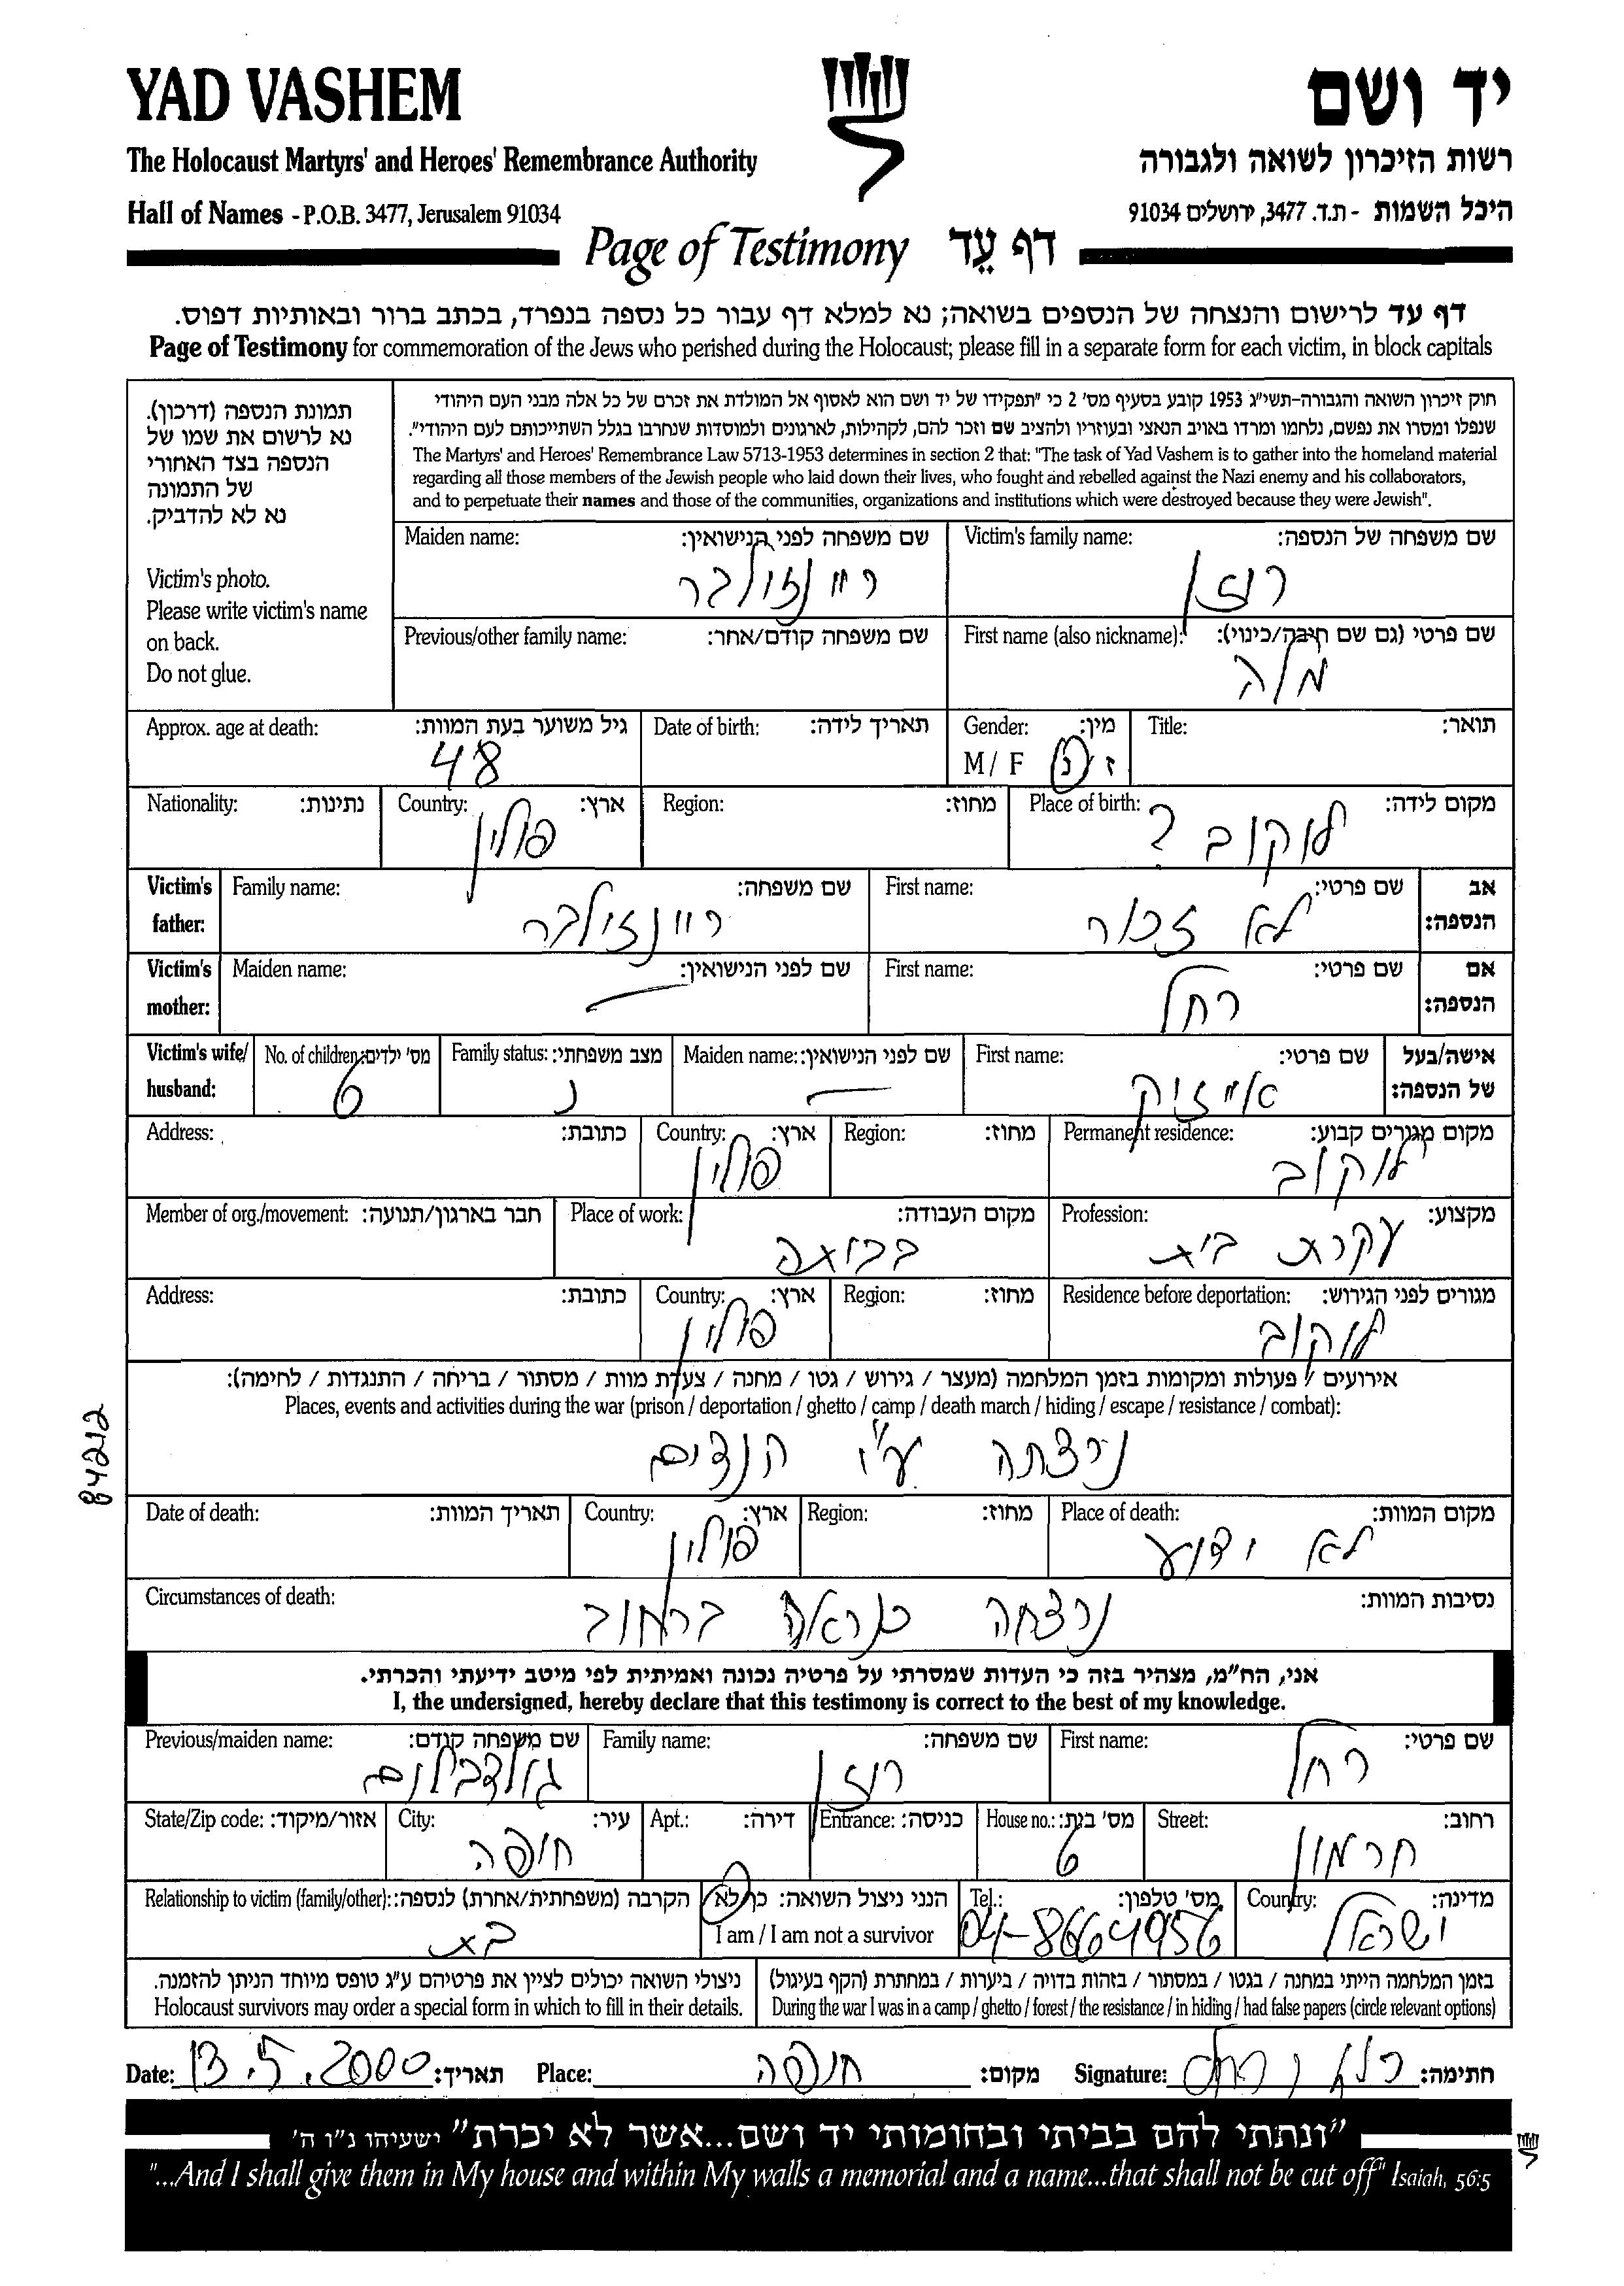 YAD VASHEM
יד ושם
The Holocaust Martyrs' and Heroes' Remembrance Authority
רשות הזיכרון לשואה ולגבורה
Hall of Names - P.O.B. 3477, Jerusalem 91034
היכל השמות - ת.ד. 3477, ירושלים 91034
Page of Testimony דף עֵד
דף עד לרישום והנצחה של הנספים בשואה; נא למלא דף עבור כל נספה בנפרד, בכתב ברור ובאותיות דפוס.
Page of Testimony for commemoration of the Jews who perished during the Holocaust; please fill in a separate form for each victim, in block capitals
תמונת הנספה (דרכון).
נא לרשום את שמו של
הנספה בצד האחורי
של התמונה
נא לא להדביק.
Victim's photo.
Please write victim's name
on back.
Do not glue.
חוק זיכרון השואה והגבורה-תשי"ג 1953 קובע בסעיף מס' 2 כי "תפקידו של יד ושם הוא לאסוף אל המולדת את זכרם של כל אלה מבני העם היהודי
שנפלו ומסרו את נפשם, נלחמו ומרדו באויב הנאצי ובעוזריו ולהציב שם וזכר להם, לקהילות, לארגונים ולמוסדות שנחרבו בגלל השתייכותם לעם היהודי".
The Martyrs' and Heroes' Remembrance Law 5713-1953 determines in section 2 that: "The task of Yad Vashem is to gather into the homeland material
regarding all those members of the Jewish people who laid down their lives, who fought and rebelled against the Nazi enemy and his collaborators,
and to perpetuate their names and those of the communities, organizations and institutions which were destroyed because they were Jewish".
Victim's family name: שם משפחה של הנספה:
רוזן
Maiden name: שם משפחה לפני הנישואין:
First name (also nickname): שם פרטי (גם שם חיבה/כינוי):
מלה
Previous/other family name: שם משפחה קודם/אחר:
Title: תואר:
Gender: מין:
M / F ז / נ
Date of birth: תאריך לידה:
Approx. age at death: גיל משוער בעת המוות:
48
Place of birth: מקום לידה:
לוקוב ?
Region: מחוז:
Country: ארץ:
פולין
Nationality: נתינות:
Victim's father: אב הנספה:
First name: שם פרטי:
לא זכור
Family name: שם משפחה:
Victim's mother: אם הנספה:
First name: שם פרטי:
רחל
Maiden name: שם לפני הנישואין:
—
Victim's wife/husband: אישה/בעל של הנספה:
First name: שם פרטי:
אייזיק
Maiden name: שם לפני הנישואין:
—
Family status: מצב משפחתי:
נ
No. of children: מס' ילדים:
6
Permanent residence: מקום מגורים קבוע:
לוקוב
Region: מחוז:
Country: ארץ:
פולין
Address: כתובת:
Profession: מקצוע:
עקרת בית
Place of work: מקום העבודה:
Member of org./movement: חבר בארגון/תנועה:
Residence before deportation: מגורים לפני הגירוש:
לוקוב
Region: מחוז:
Country: ארץ:
פולין
Address: כתובת:
אירועים / פעולות ומקומות בזמן המלחמה (מעצר / גירוש / גטו / מחנה / צעדת מוות / מסתור / בריחה / התנגדות / לחימה):
Places, events and activities during the war (prison / deportation / ghetto / camp / death march / hiding / escape / resistance / combat):
נירצחה ע"י הנאצים
84212
Place of death: מקום המוות:
לא ידוע
Region: מחוז:
Country: ארץ:
פולין
Date of death: תאריך המוות:
Circumstances of death: נסיבות המוות:
נרצחה כנראה ברחוב
אני, הח"מ, מצהיר בזה כי העדות שמסרתי על פרטיה נכונה ואמיתית לפי מיטב ידיעתי והכרתי.
I, the undersigned, hereby declare that this testimony is correct to the best of my knowledge.
First name: שם פרטי:
רחל
Family name: שם משפחה:
רוזן
Previous/maiden name: שם משפחה קודם:
גולדבלום
Street: רחוב:
חרמון
House no.: מס' בית:
6
Entrance: כניסה:
Apt.: דירה:
City: עיר:
חיפה
State/Zip code: אזור/מיקוד:
Country: מדינה:
ישראל
Tel.: מס' טלפון:
04-8664956
הנני ניצול השואה: כן/לא
I am / I am not a survivor
Relationship to victim (family/other): הקרבה (משפחתית/אחרת) לנספה:
בת
בזמן המלחמה הייתי במחנה / בגטו / במסתור / בזהות בדויה / ביערות / במחתרת (הקף בעיגול)
During the war I was in a camp / ghetto / forest / the resistance / in hiding / had false papers (circle relevant options)
ניצולי השואה יכולים לציין את פרטיהם ע"ג טופס מיוחד הניתן להזמנה.
Holocaust survivors may order a special form in which to fill in their details.
Date: 13.5.2000 תאריך: Place: חיפה מקום: Signature: רוזן רחל חתימה:
"ונתתי להם בביתי ובחומותי יד ושם...אשר לא יכרת" ישעיהו נ"ו ה'
"...And I shall give them in My house and within My walls a memorial and a name...that shall not be cut off" Isaiah, 56:5